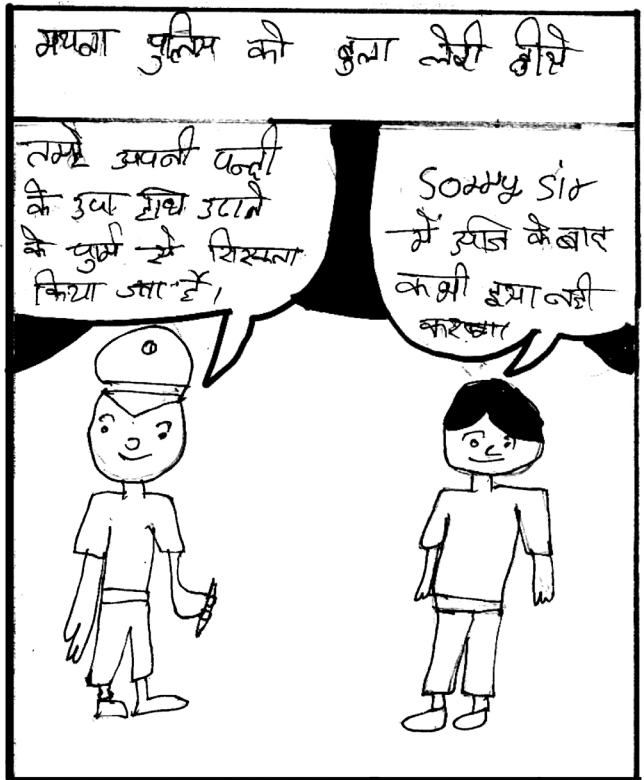 मयना पुलिस को बुला लेती हीसे
तुमहे अपनी पन्ती
के उपा हाथ उठाने
के जुर्म से गिरफ्ता
किया जता है।
Sorry Sir
में आज के बाद
कभी इसा नही
करूगा